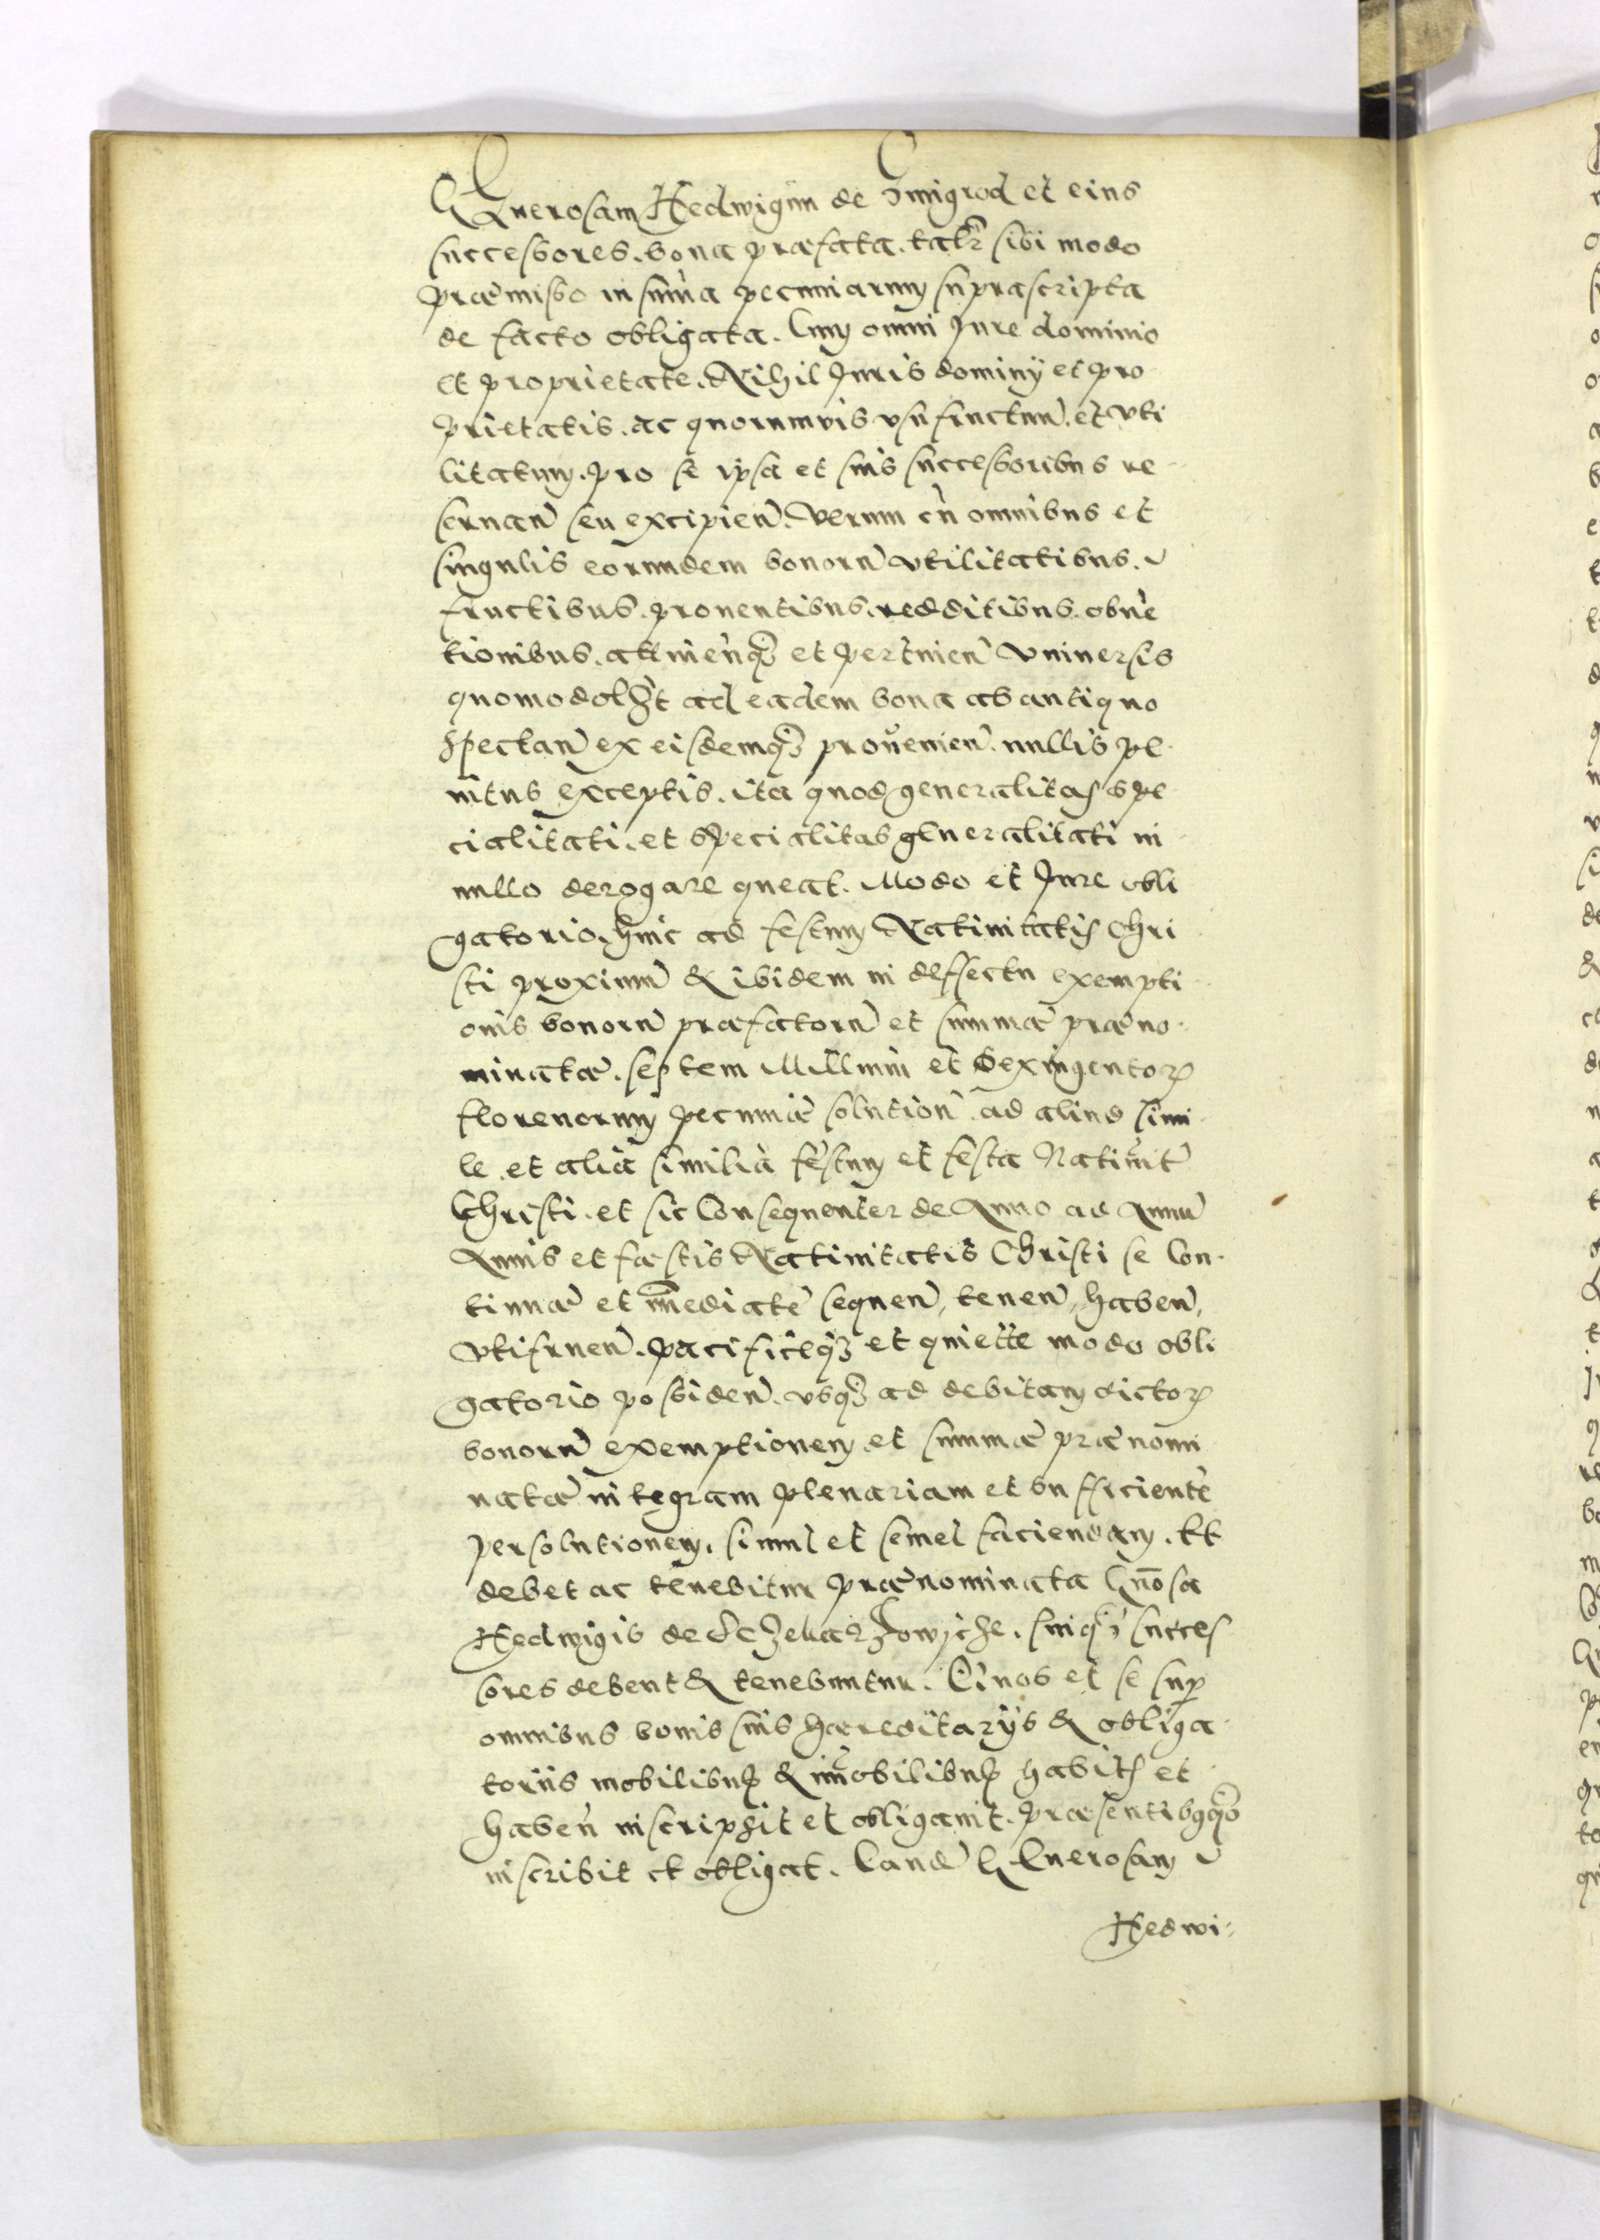 Generosam Hedwigim de Zmigrod et eius
successores. bona præfata. talr sibi modo
præmisso in suma pecuniarum suprascripta
de facto obligata. Cum omni Jure dominio
et proprietate. Nihil Juris dominÿ et pro
prietatis. ac quorumvis vsufructuu. et vti
litatum. pro se ipsa et suis successoribus re
seruan seu excipien. Verum cu omnibus et
singulis eorumdem bonoru vtilitatibus.
fructibus. prouentibus. redditibus. obue
tionibus. attinenq3 et pertinen vniuersis
quomodolbt ad eadem bona ab antiquo
spectan ex eisdemq3 prouenien. nullis pe
nitus exceptis. ita quod generalitas spe
cialitati. et specialitas generalitati in
nullo derogare queat. Modo et Jure obli
gatorio. hinc ad festum Natiuitatis Chri
sti proximu & ibidem in deffectu exempti
onis bonoru præfatoru et summæ præno
minatæ. septem Millium et Sexingentor
florenorum pecuniæ solution. ad aliud simi
le. et alia similia festum et festa Natiuit
Christi. et sic Consequenter de Anno ad Annu
Annis et fæstis Natiuitatis Christi se Con
tinuæ et immediate sequen, tenen, haben,
vtifruen. pacificeq3 et quiette modo obli
gatorio possiden. vsq3 ad debitam dictor
bonoru exemptionem et summæ prænomi
natæ integram plenariam et sufficiente
persolutionem. simul et semel faciendam. Et
debet ac tenebitur prænominata Gnosa
Hedwigis de suiq3 succes
sores debent & tenebuntur. Cu nos et se sup
omnibus bonis suis hæreditarÿs & obliga
toriis mobilibus & imobilibus habits et
haben inscripsit et obligauit. præsentibqq3
inscribit et obligat. Eande Generosam
Hedwi: